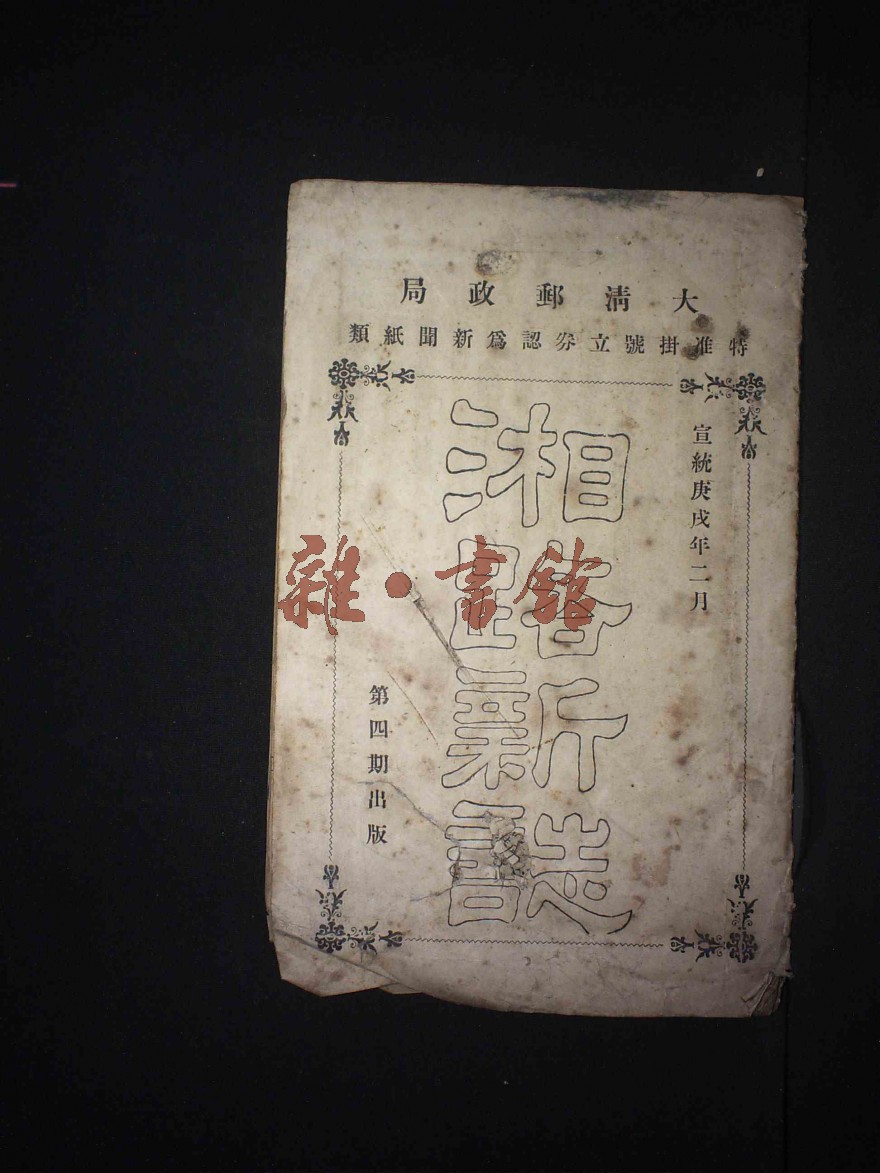 大清郵政局
特准掛號立劵認爲新聞紙類
宣統庚戌年二月
湘路新誌
第四期出版
雜·書館